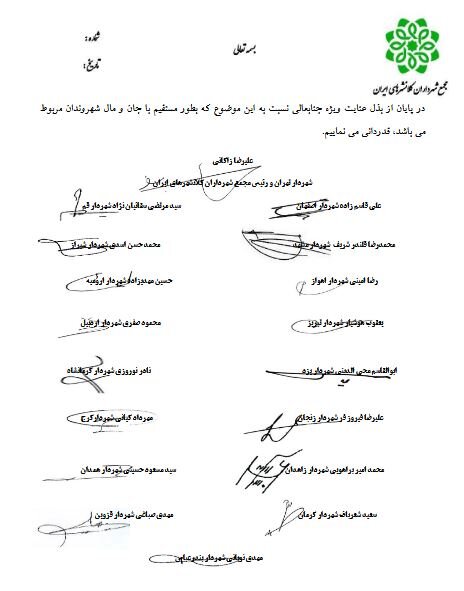 شماره:
بسمه تعالی
تاریخ:
مجمع شهرداران کلانشهرهای ایران
در پایان از بذل عنایت ویژه جنابعالی نسبت به این موضوع که بطور مستقیم با جان و مال شهروندان مربوط
می باشد، قدردانی می نماییم.
علیرضا زاکانی
شهردار تهران و رئیس مجمع شهرداران کلانشهرهای ایران
علی قاسم زاده شهردار اصفهان
سید مرتضی سقائیان نژاد شهردار قم
محمدرضا قلندر شریف شهردار مشهد
محمد حسن اسدی شهردار شیراز
رضا امینی شهردار اهواز
حسین مهدیزاده شهردار ارومیه
یعقوب هوشیار شهردار تبریز
محمود صفری شهردار اردبیل
ابوالقاسم محی الدینی شهردار یزد
نادر نوروزی شهردار کرمانشاه
علیرضا فیروز فر شهردار زنجان
مهرداد کیانی شهردار کرج
محمد امیر براهویی شهردار زاهدان
سید مسعود حسینی شهردار همدان
سعید شعرباف شهردار کرمان
مهدی صباغی شهردار قزوین
مهدی نوبانی شهردار بندرعباس